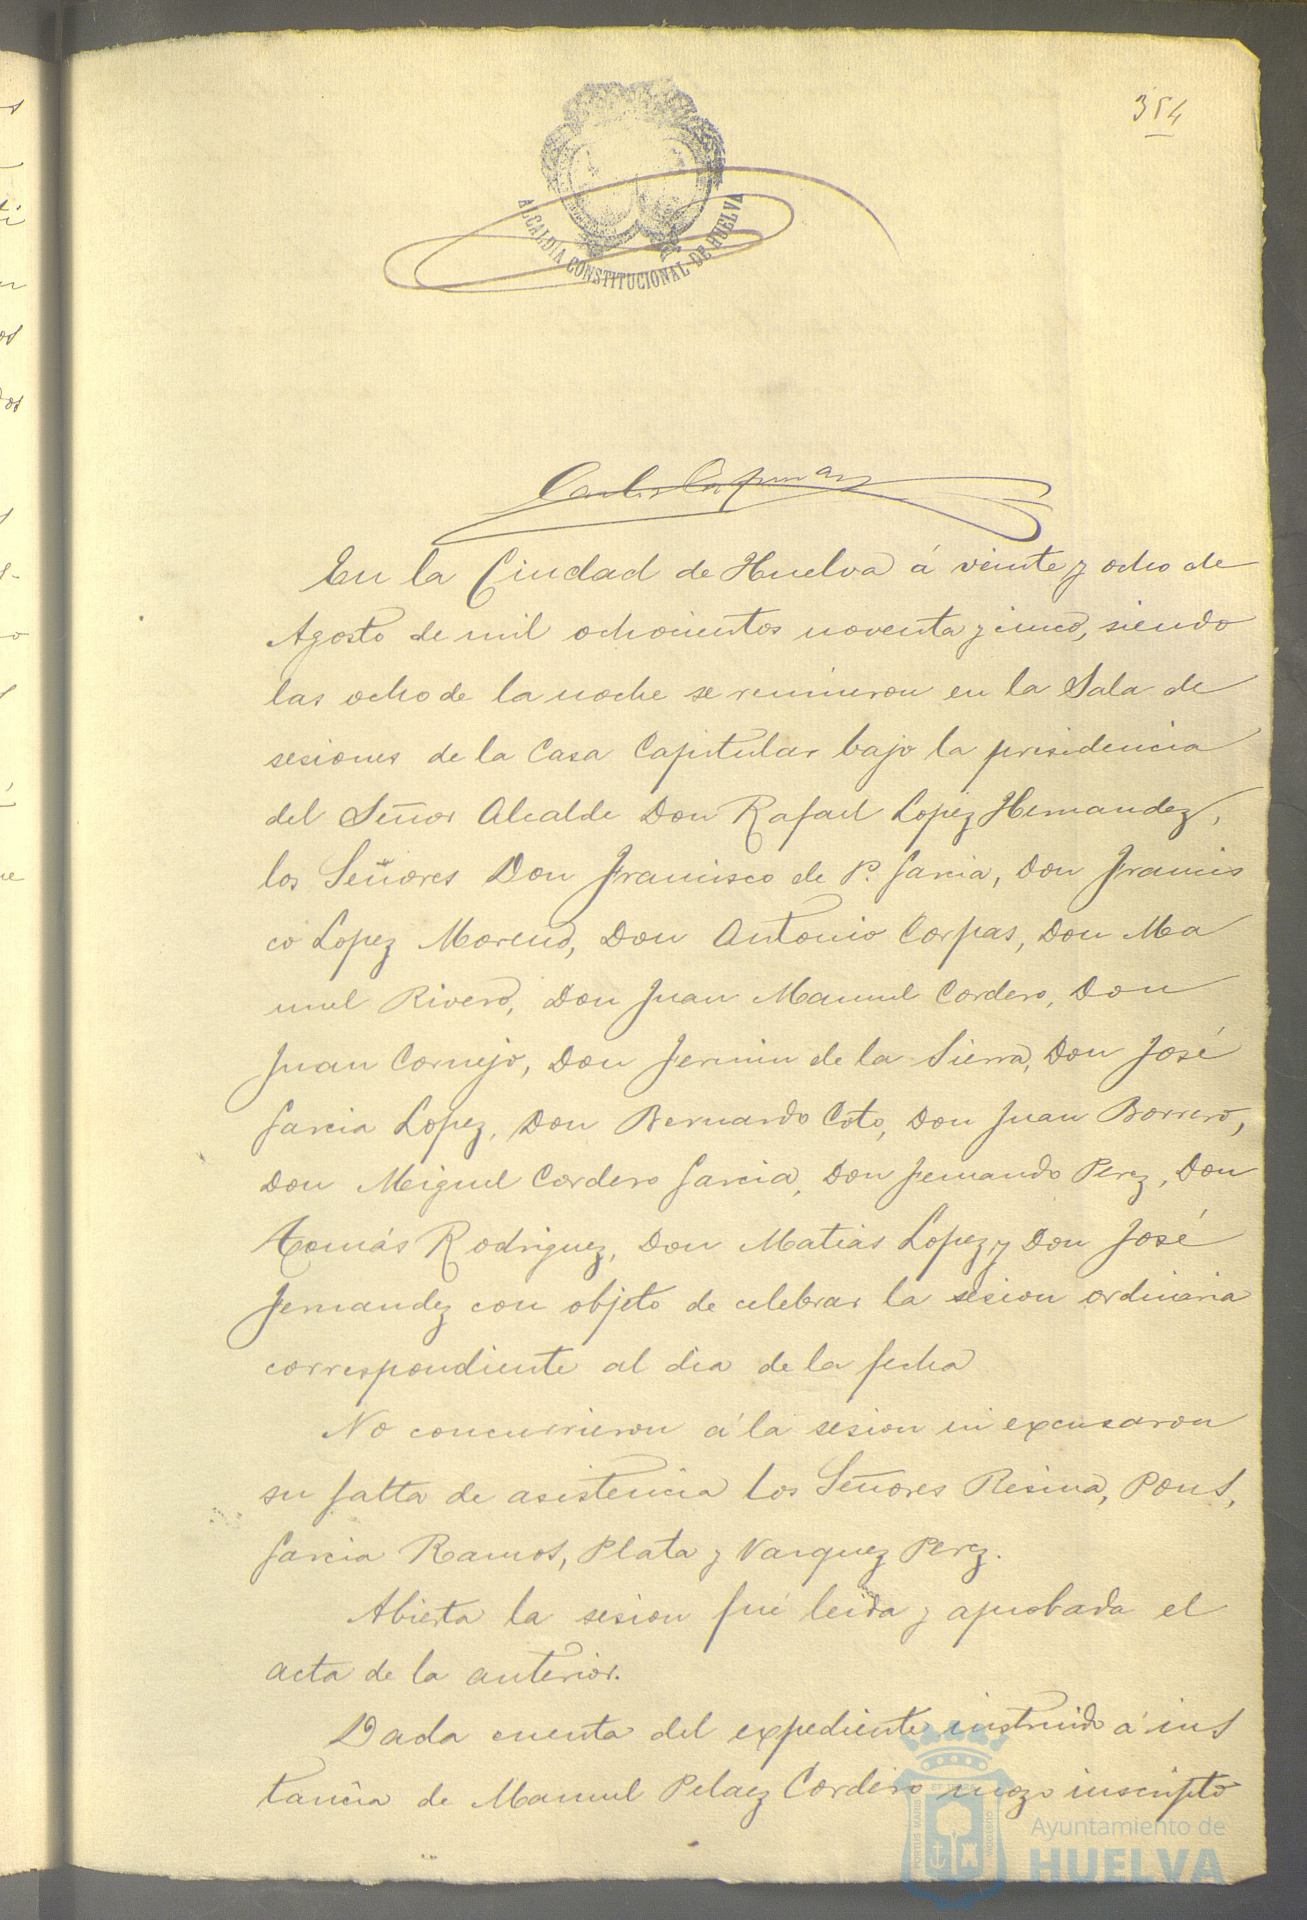 354
ALCALDIA CONSTITUCIONAL DE HUELVA
En la Ciudad de Huelva á veinte y ocho de
Agosto de mil ochocientos noventa y cinco, siendo
las ocho de la noche se reunieron en la Sala de
sesiones de la Casa Capitular bajo la presidencia
del Señor Alcalde Don Rafael Lopez Hernandez,
los Señores Don Francisco de P. Garcia, Don Francis
co Lopez Moreno, Don Antonio Corpas, Don Ma
nuel Rivero, Don Juan Manuel Cordero, Don
Juan Cornejo, Don Fermin de la Sierra, Don José
Garcia Lopez, Don Bernardo Coto, Don Juan Borrero,
Don Miguel Cordero Garcia, Don Fernando Perez, Don
Tomás Rodriguez, Don Matias Lopez y Don José
Fernandez con objeto de celebrar la sesion ordinaria
correspondiente al dia de la fecha
No concurrieron á la sesion ni excusaron
su falta de asistencia los Señores Resina, Pons,
Garcia Ramos, Plata y Vazquez Perez.
Abierta la sesion fué leida y aprobada el
acta de la anterior.
Dada cuenta del expediente instruido á ins
tancia de Manuel Pelaez Cordero mozo inscripto
Ayuntamiento de
HUELVA